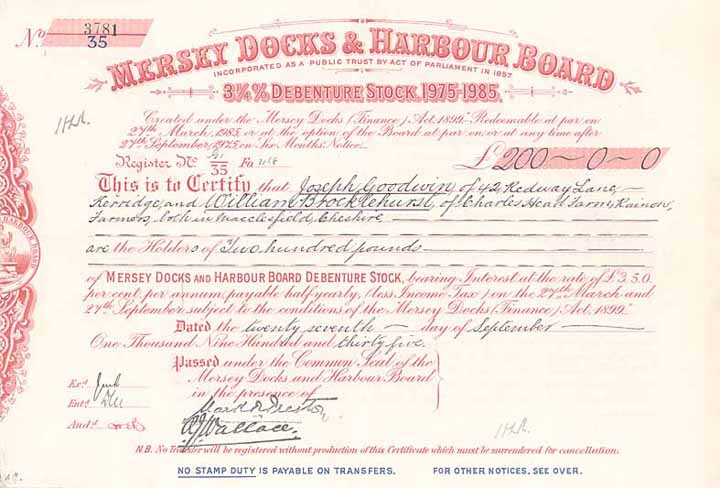 No. 3781
35
MERSEY DOCKS & HARBOUR BOARD
INCORPORATED AS A PUBLIC TRUST BY ACT OF PARLIAMENT IN 1857
3¼% DEBENTURE STOCK. 1975-1985.
Created under the Mersey Docks (Finance) Act, 1899. Redeemable at par on
27th March, 1985 or at the option of the Board at par on or at any time after
27th September 1975 on Six Months' Notice.
Register No. 35 Fo.
£200-0-0
This is to Certify that Joseph Goodwin, of 42 Redway Lane,
Kerridge, and William Brocklehurst, of Charles Head Farm, Rainow,
Farmers, both in Macclesfield, Cheshire
are the Holders of Two hundred pounds
of MERSEY DOCKS AND HARBOUR BOARD DEBENTURE STOCK, bearing Interest at the rate of £3.5.0.
per cent. per annum, payable half-yearly, (less Income Tax) on the 27th March and
27th September subject to the conditions of the Mersey Docks (Finance) Act, 1899.
Dated the twenty seventh day of September
One Thousand Nine Hundred and thirty five.
Passed under the Common Seal of the
Mersey Docks and Harbour Board
in the presence of
Exd.
Entd.
Wallace.
Audd.
N.B. No Transfer will be registered without production of this Certificate which must be surrendered for cancellation.
NO STAMP DUTY IS PAYABLE ON TRANSFERS. FOR OTHER NOTICES, SEE OVER.